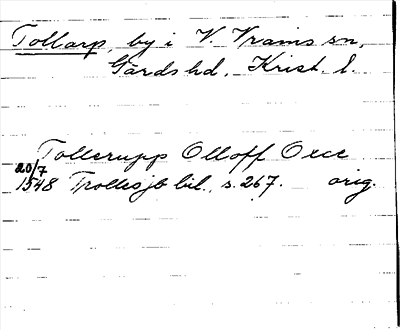 Tollarp, by i V. Vrams sn,
Gärds hd, Krist. l.
Tollerupp Olloff Oxce
20/7
1548 Trollesjb bil. s. 267. orig.